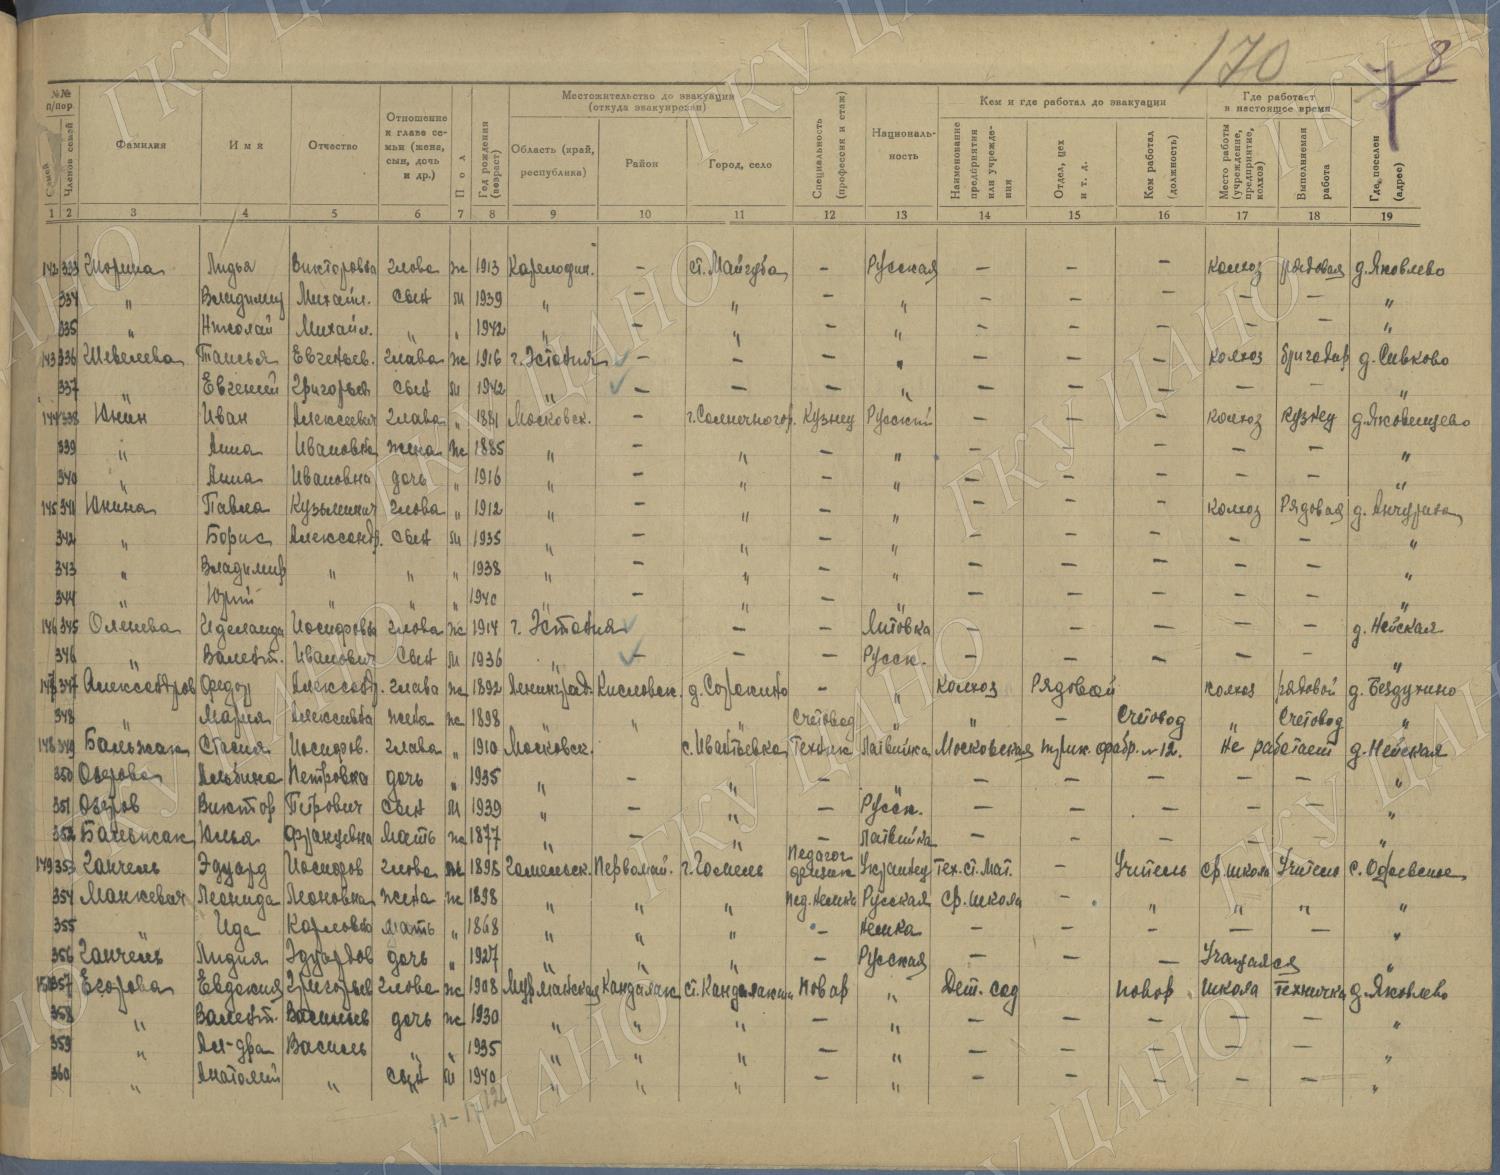 170
8
№№ п/пор.
Семей
Членов семей
Фамилия
Имя
Отчество
Отношение к главе семьи (жена, сын, дочь и др.)
Пол
Год рождения (возраст)
Местожительство до эвакуации (откуда эвакуирован)
Область (край, республика)
Район
Город, село
Специальность (профессия и стаж)
Националь-ность
Кем и где работал до эвакуации
Наименование предприятия или учрежде-ния
Отдел, цех и т. д.
Кем работал (должность)
Где работает в настоящее время
Место работы (учреждение, предприятие, колхоз)
Выполняемая работа
Где поселен (адрес)
1 2 3 4 5 6 7 8 9 10 11 12 13 14 15 16 17 18 19
142 333 Лидья Викторовна глова ж 1913 Карелофин. — ст. Майгуба — Русская — — — колхоз рядовая д. Яковлево
334 " Владимир Михайл. сын м 1939 " — " — " — — — — — "
335 " Николай Михайл. " " 1942 " — " — " — — — — — "
143 336 Шевелева Таисья Евгеньев. глава ж 1916 г. Эстония — — — " — — — колхоз бригадир д. Сивково
337 " Евгений Григорьев сын м 1942 " — — — " — — — — — "
144 338 Юнин Иван Алексеевич глава " 1881 Московск. — г. Солнечногор. Кузнец Русский — — — колхоз кузнец д. Яковенцево
339 " Анна Ивановна жена ж 1885 " — " — " — — — — — "
340 " Анна Ивановна дочь " 1916 " — " — " — — — — — "
145 341 Юнина Павла Кузьминич глова " 1912 " — " — " — — — колхоз Рядовая д. Анчурино
342 " Борис Александр. сын м 1935 " — " — " — — — — — "
343 " Владимир " " " 1938 " — " — " — — — — — "
344 " Юрий " " " 1940 " — " — " — — — — — "
146 345 Оленева Иделаида Иосифовна глова ж 1914 г. Эстония — — Литовка — — — — — д. Нейская
346 " Валент. Иванович сын м 1936 " — — — Русск. — — — — — "
147 347 Александров Федор Александр. глава ж 1892 Ленинград. Кисловск. д. Сорокино — " Колхоз Рядовой колхоз рядовой д. Бездухино
348 " Мария Алексеевна жена ж 1898 " " " Счетовод " " — Счетовод " Счетовод "
148 349 Бальжак Стасия Иосифов. глава " 1910 Московск. с. Ивантьевка Техник Латвийка Московская трик. фабр. № 12. не работает д. Нейская
350 Озерова Альбина Петровна дочь " 1935 " — " — " — — — — — "
351 Озеров Виктор Петрович сын м 1939 " — " — Русск. — — — — — "
352 Бальжак Юлья Францевна мать ж 1877 " — " — Латвийка — — — — — "
149 353 Ганчель Эдуард Иосифов глова ж 1895 Гомельск. Первомай. г. Гомель Педагог физик Украинец Тех. ст. Мат. Учитель ср. школа Учитель
354 Манкевич Леонида Леоновна жена ж 1898 " " " Пед. немка Русская ср. школа — " " " "
355 " Ида Карловна мать " 1868 " " " — немка — — — — — "
356 Ганчель Лидия Эдуардов дочь " 1927 " " " — Русская — — — Учащаяся "
150 357 Егорова Евдокия Григорьев глова ж 1908 Мурманская Кандалак. ст. Кандалакша повар " Дет. сад повар школа техничка д. Яковлево
358 " Валент. Васильев дочь ж 1930 " " " — " — — — — — "
359 " Ал-дра Василь " " 1935 " " " — " — — — — — "
360 " Анатолий " сын м 1940 " " " — " — — — — — "
ГКУ ЦАНО